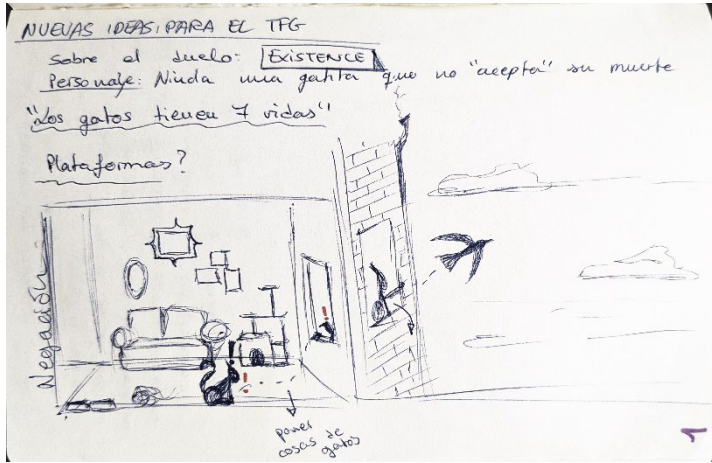 NUEVAS IDEAS PARA EL TFG
Sobre el duelo: EXISTENCE
Personaje: Ninda una gatita que no "acepta" su muerte
"Los gatos tienen 7 vidas"
Plataformas?
Negación
!
!
poner
cosas de
gatos
1